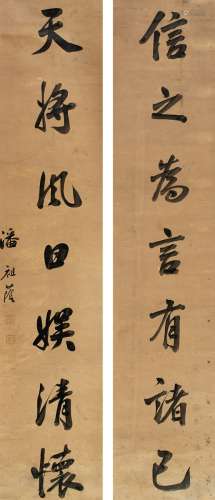 信之為言有諸己
天將風日娛清懷
潘祖蔭